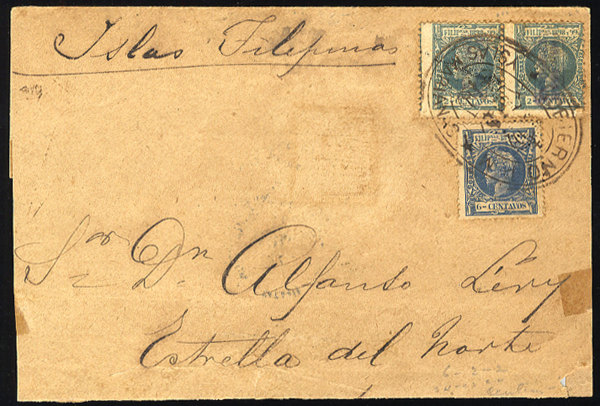 Islas Filipinas
FILIPINAS
FILIPINAS
2 CENTAVOS
FILIPINAS
6-CENTAVOS
Sor Dn Alfonso Levy
Estrella del Norte